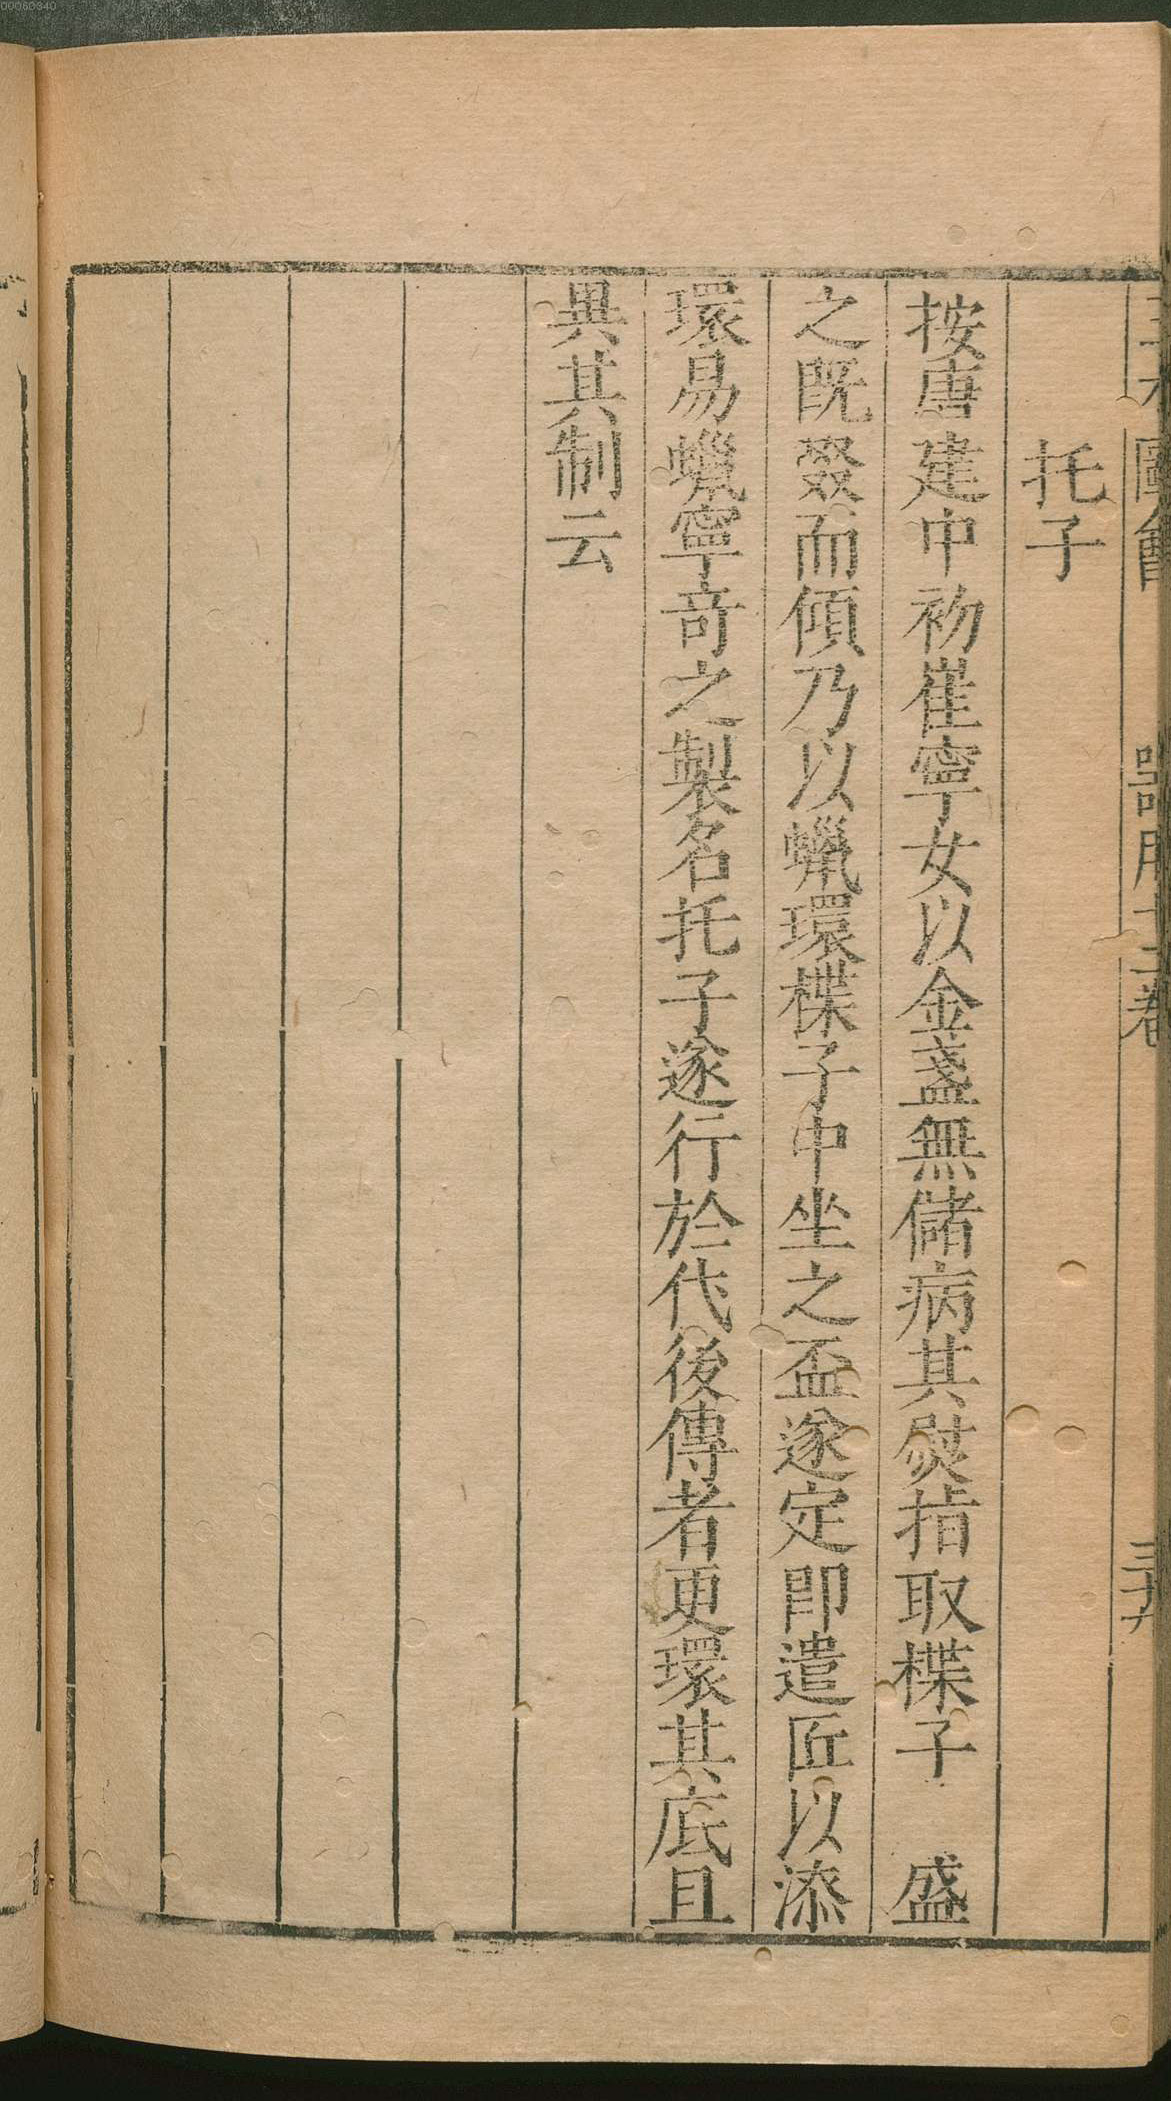 三才圖會 器用十二卷 三十九
托子
按唐建中初崔寧女以金盞無儲病其熨指取楪子 盛
之既啜而傾乃以蠟環楪子中坐之盃遂定即遣匠以漆
環易蠟寧奇之製名托子遂行於代後傳者更環其底且
異其制云
00060340